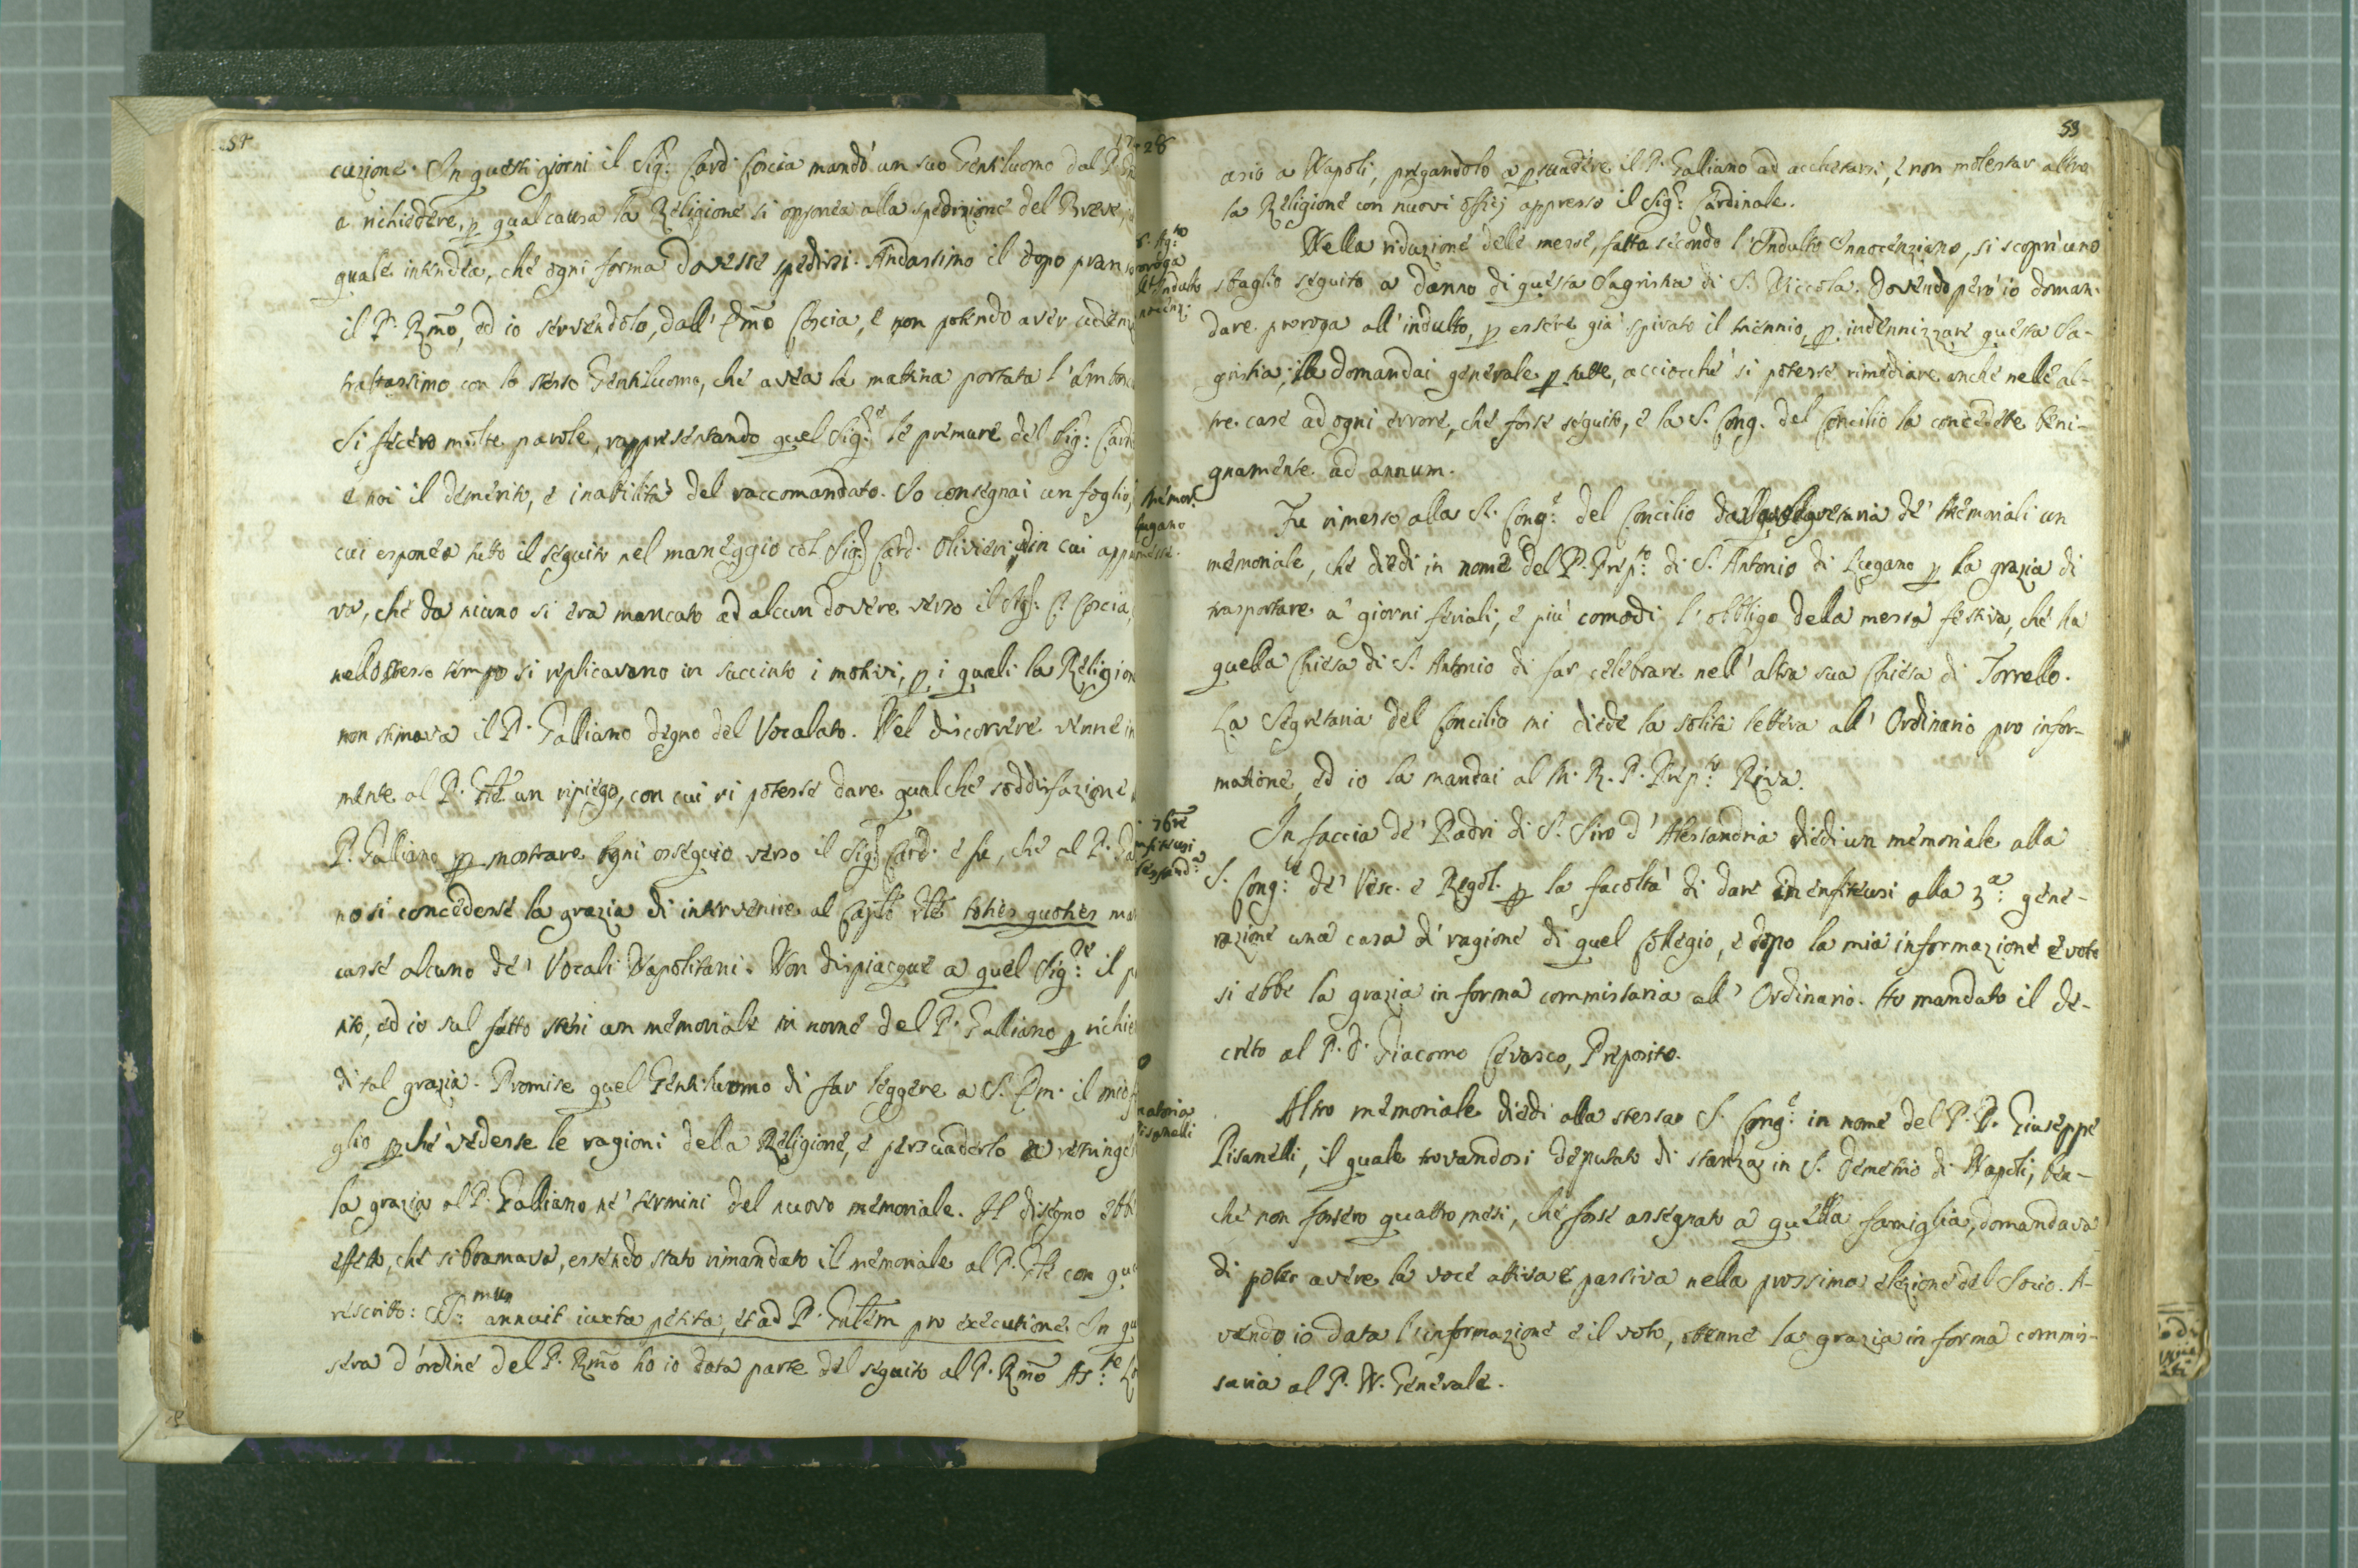 54
1728
cuzione. In questi giorni il Sig.r Card. Coscia mandò un suo Gentiluomo dal P.
a richiedere, p qual causa la Religione si opponea alla spedizione del Breve,
quale intendea, che ogni forma dovesse spedirsi. Andassimo il dopo pran
il P. Rmo, ed io servendolo, dall' Emo Coscia, e non potendo aver udien
trattassimo con lo stesso Gentiluomo, che avea la mattina portata l'amba
Si fecero molte parole, rappresentando quel Sig.re le premure del Sig: Card
e noi il demerito, e inabilità del raccomandato. Io consegnai un foglio,
cui esponea tutto il seguito nel maneggio col Sig.r Card. Olivieri, ed in cui app
va, che da niuno si era mancato ad alcun dovere verso il Sig.r C. Coscia,
nello stesso tempo si replicavano in succinto i motivi, p i quali la Religion
non stimava il P. Galliano degno del Vocalato. Nel discorrere venne in
mente al P. Gle un ripiego, con cui si potesse dare qualche soddisfazione
P. Galliano p mostrare ogni ossequio verso il Sig.r Card. e fu, che al P. Ga
no si concedesse la grazia di intervenire al Caplo Gle toties quoties ma
casse alcuno de' Vocali Napolitani. Non dispiacque a quel Sig.re il p
ito, ed io sul fatto stesi un memoriale in nome del P. Galliano p richie
di tal grazia. Promise quel Gentiluomo di far leggere a S. Em. il mio f
glio pchè vedesse le ragioni della Religione, e persuaderlo a restringe
la grazia al P. Galliano ne' termini del nuovo memoriale. Il disegno ebb
effetto, che si bramava, essendo stato rimandato il memoriale al P. Gle con que
rescritto: SS.mus annuit iuxta petita, et ad P. Gnlem pro executione. In qu
sera d'ordine del P. Rmo ho io data parte del seguito al P. Rmo As.te
59
asio a Napoli, pregandolo a psuadere il P. Galliano ad acchetarsi, e non molestar altro
la Religione con nuovi offizj appresso il Sig.r Cardinale.
Ag.to
proroga
Indulto
Nella riduzione delle messe, fatta secondo l'Indulto Innocenziano, si scoprì uno
sbaglio seguito a danno di questa Sagristia di S. Niccola. Dovendo però io doman-
dare proroga all'indulto, p essere già spirato il triennio, p indennizzare questa Sa-
gristia, la domandai generale p tutte, acciocchè si potesse rimediare anche nelle al-
tre case ad ogni errore, che fosse seguito, e la S. Cong. del Concilio la concedette beni-
gnamente ad annum.
Memor.
Lugano
messe.
Fu rimesso alla S. Cong.e del Concilio dalla Segretaria de' Memoriali un
memoriale, che diedi in nome del P. Prep.to di S. Antonio di Lugano p la grazia di
trasportare a' giorni feriali, e più comodi l'obbligo della messa festiva, che ha
quella Chiesa di S. Antonio di far celebrare nell'altra sua Chiesa di Torrello.
La Segretaria del Concilio mi diede la solita lettera all'Ordinario pro infor-
matione, ed io la mandai al M. R. P. Prep.to Riva.
7bre
enfiteusi
In faccia de' Padri di S. Siro d'Alessandria diedi un memoriale alla
S. Cong.e de' Vesc. e Regol. p la facoltà di dare in enfiteusi alla 3.a gene-
razione una casa di ragione di quel Collegio, e dopo la mia informazione e voto
si ebbe la grazia in forma commissaria all'Ordinario. Ho mandato il de-
creto al P. D. Giacomo Cevasco, Preposito.
Pisanelli
Altro memoriale diedi alla stessa S. Cong.e in nome del P. D. Giuseppe
Pisanelli, il quale trovandosi deputato di stanza in S. Demetrio di Napoli, ben-
chè non fossero quattro mesi, che fosse assegnato a quella famiglia, domandava
di poter avere la voce attiva e passiva nella prossima elezione del Socio. A-
vendo io data l'informazione e il voto, ottenne la grazia in forma commis-
saria al P. N. Generale.